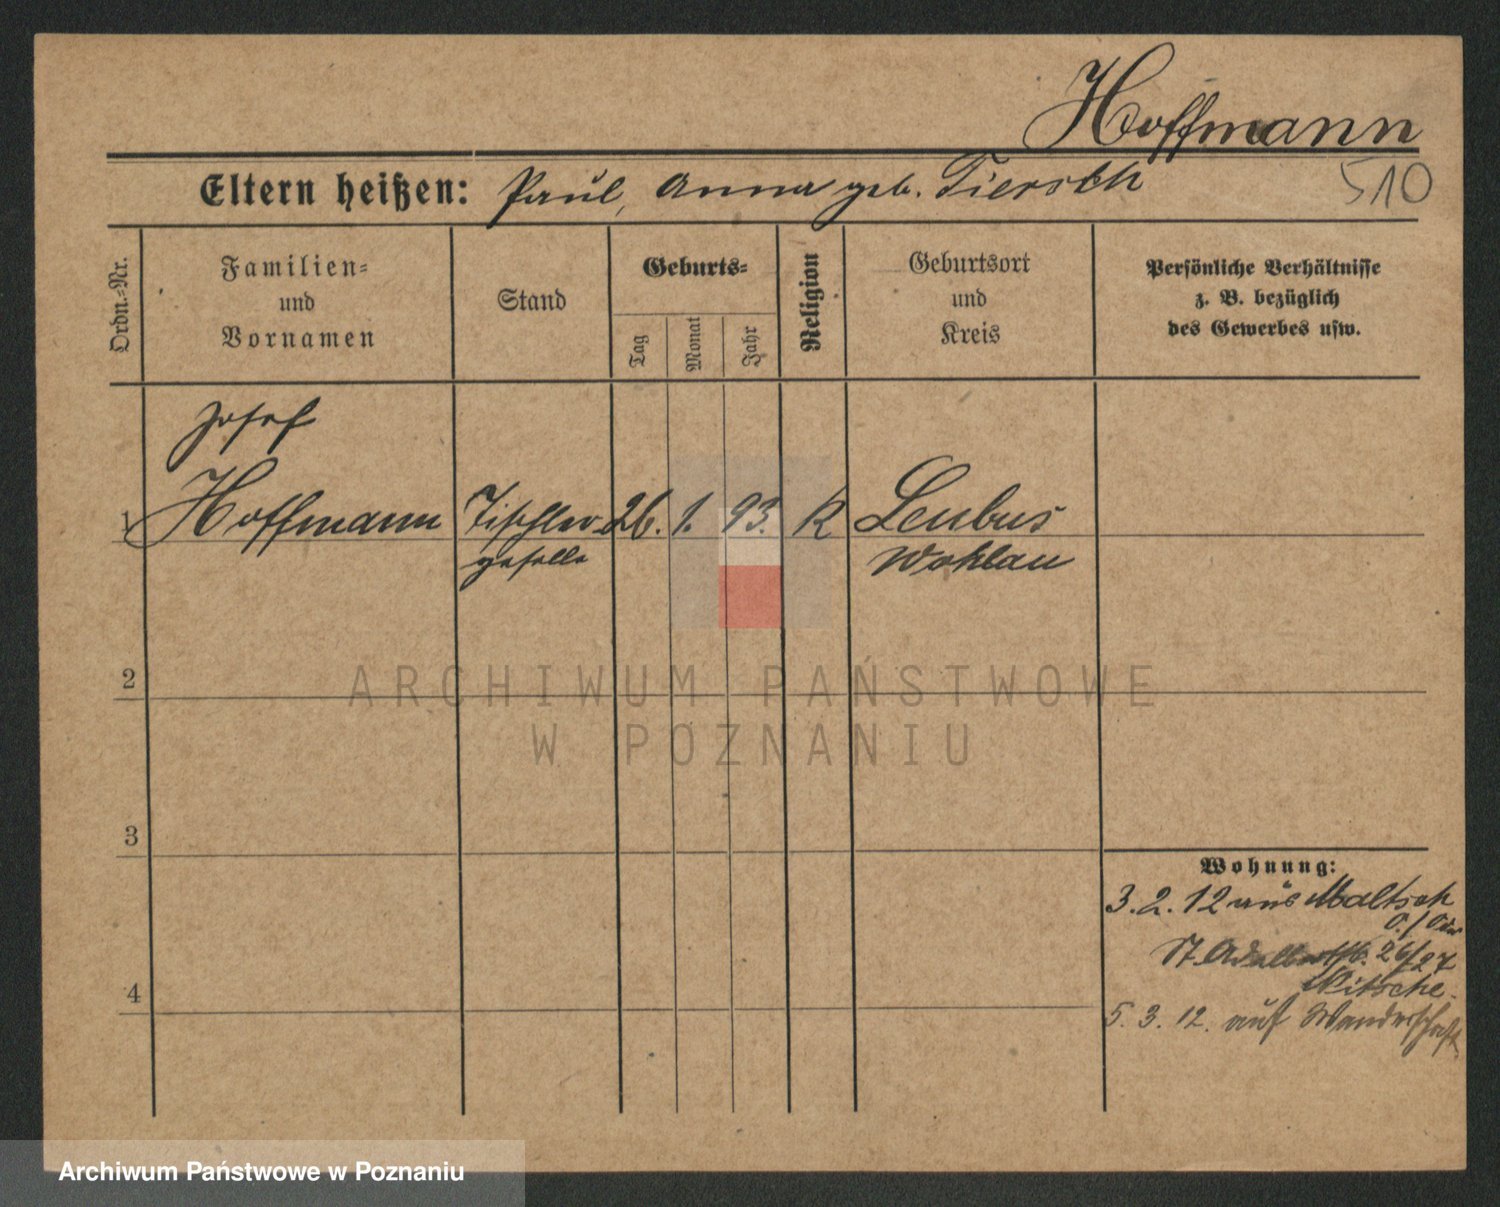 Hoffmann
510
Eltern heißen: Paul, Anna geb. Tiersch
Ordn.-Nr.
Familien-
und
Vornamen
Stand
Geburts-
Tag
Monat
Jahr
Religion
Geburtsort
und
Kreis
Persönliche Verhältnisse
z. B. bezüglich
des Gewerbes usw.
Josef
1 Hoffmann Tischler- 26. 1. 93. K Leubus
geselle Wohlau
2
ARCHIWUM PAŃSTWOWE
W POZNANIU
3
Wohnung:
3. 2. 12 aus Maltsch
o./Oder
St. Adalbertstr. 26/27
Nitsche.
4
5. 3. 12. auf Wanderschaft
Archiwum Państwowe w Poznaniu